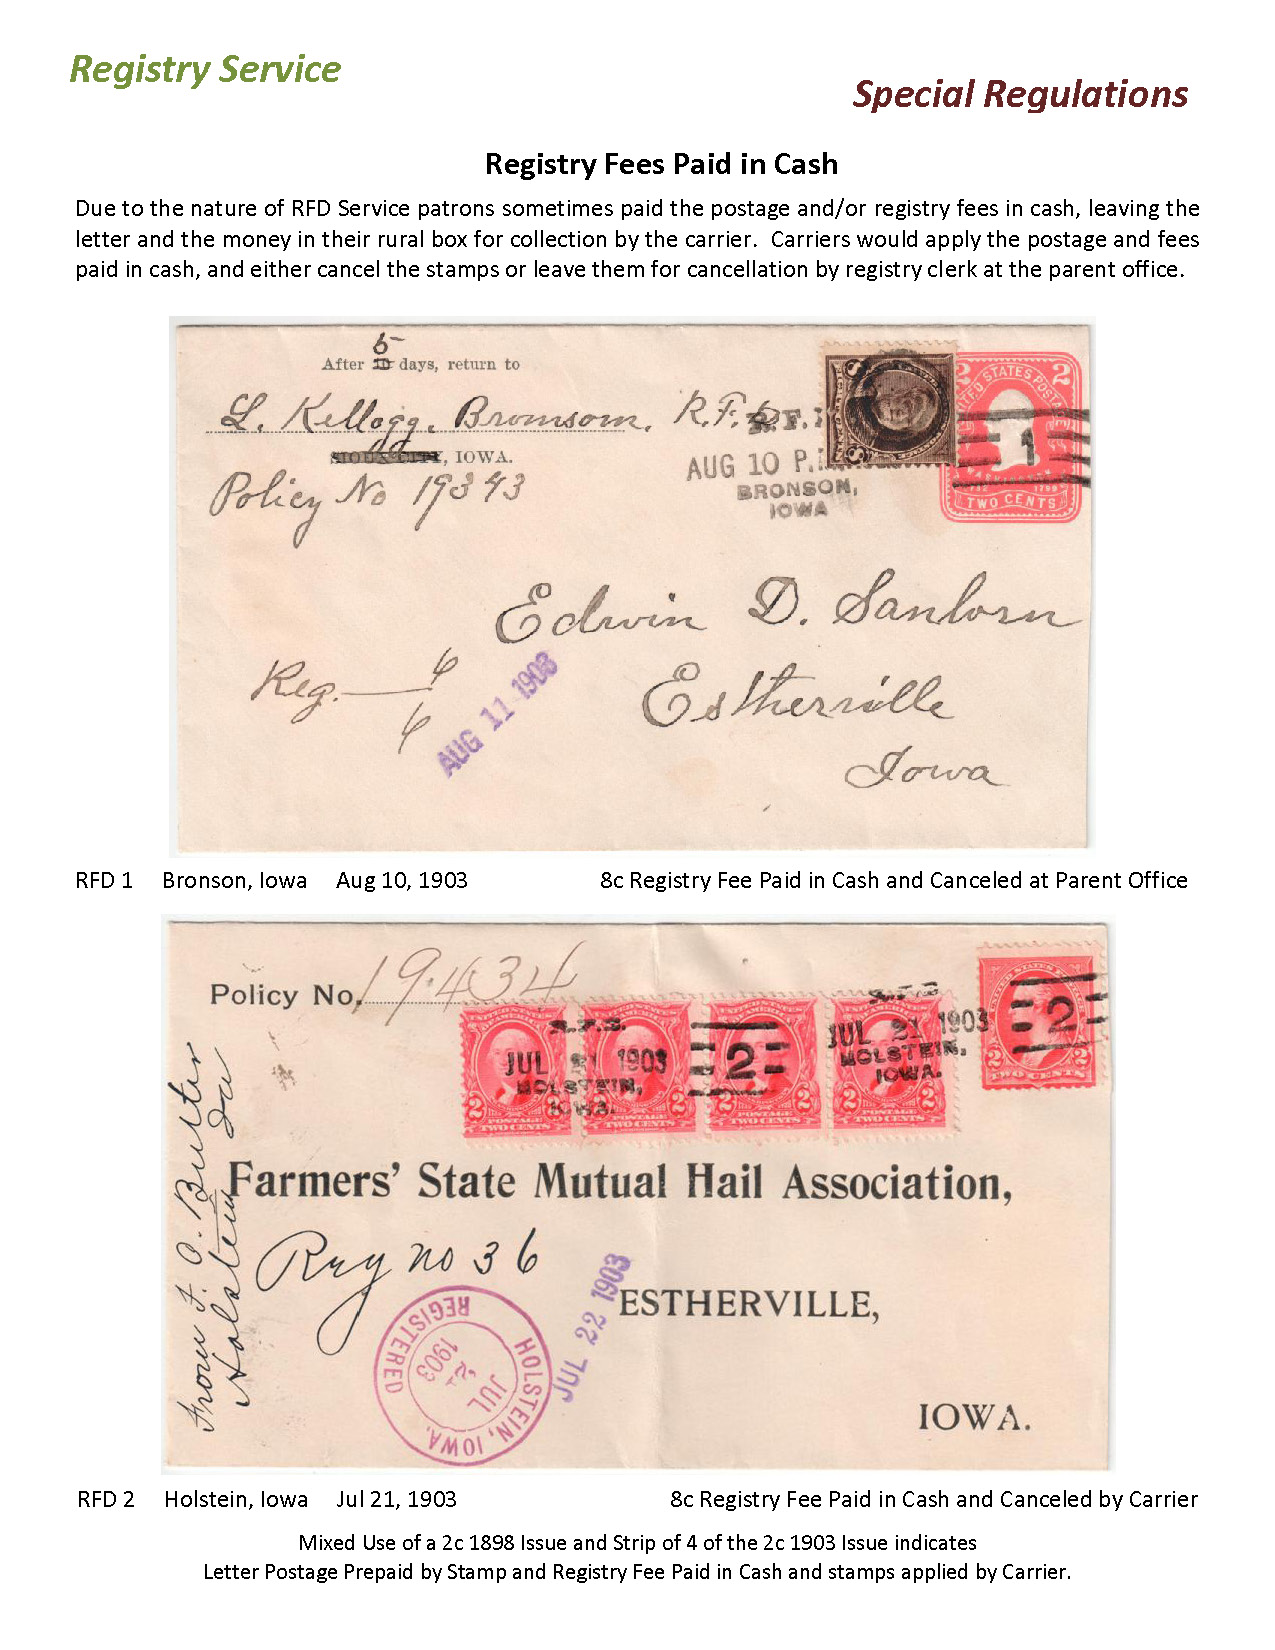 Registry Service
Special Regulations
Registry Fees Paid in Cash
Due to the nature of RFD Service patrons sometimes paid the postage and/or registry fees in cash, leaving the
letter and the money in their rural box for collection by the carrier.  Carriers would apply the postage and fees
paid in cash, and either cancel the stamps or leave them for cancellation by registry clerk at the parent office.
5
After 10 days, return to
L. Kellogg, Bronson, R.F.D.
SIOUX CITY, IOWA.
Policy No 19343
AUG 10 P.
BRONSON,
IOWA
1
2
UNITED STATES POSTAGE
WASHINGTON
TWO CENTS
Edwin D. Sanborn
Estherville
Iowa
Reg. 6
6
AUG 11 1903
RFD 1 Bronson, Iowa Aug 10, 1903 8c Registry Fee Paid in Cash and Canceled at Parent Office
Policy No. 19434
R.F.D.
JUL 21 1903
HOLSTEIN,
IOWA.
2
R.F.D.
JUL 21 1903
HOLSTEIN,
IOWA.
2
2 POSTAGE 2
TWO CENTS
2 POSTAGE 2
TWO CENTS
2 POSTAGE 2
TWO CENTS
2 POSTAGE 2
TWO CENTS
2 2
TWO CENTS
From F. O. Butler
Holstein Ia
Farmers' State Mutual Hail Association,
Reg no 36
ESTHERVILLE,
IOWA.
HOLSTEIN, IOWA.
REGISTERED
JUL
21
1903
JUL 22 1903
RFD 2 Holstein, Iowa Jul 21, 1903 8c Registry Fee Paid in Cash and Canceled by Carrier
Mixed Use of a 2c 1898 Issue and Strip of 4 of the 2c 1903 Issue indicates
Letter Postage Prepaid by Stamp and Registry Fee Paid in Cash and stamps applied by Carrier.